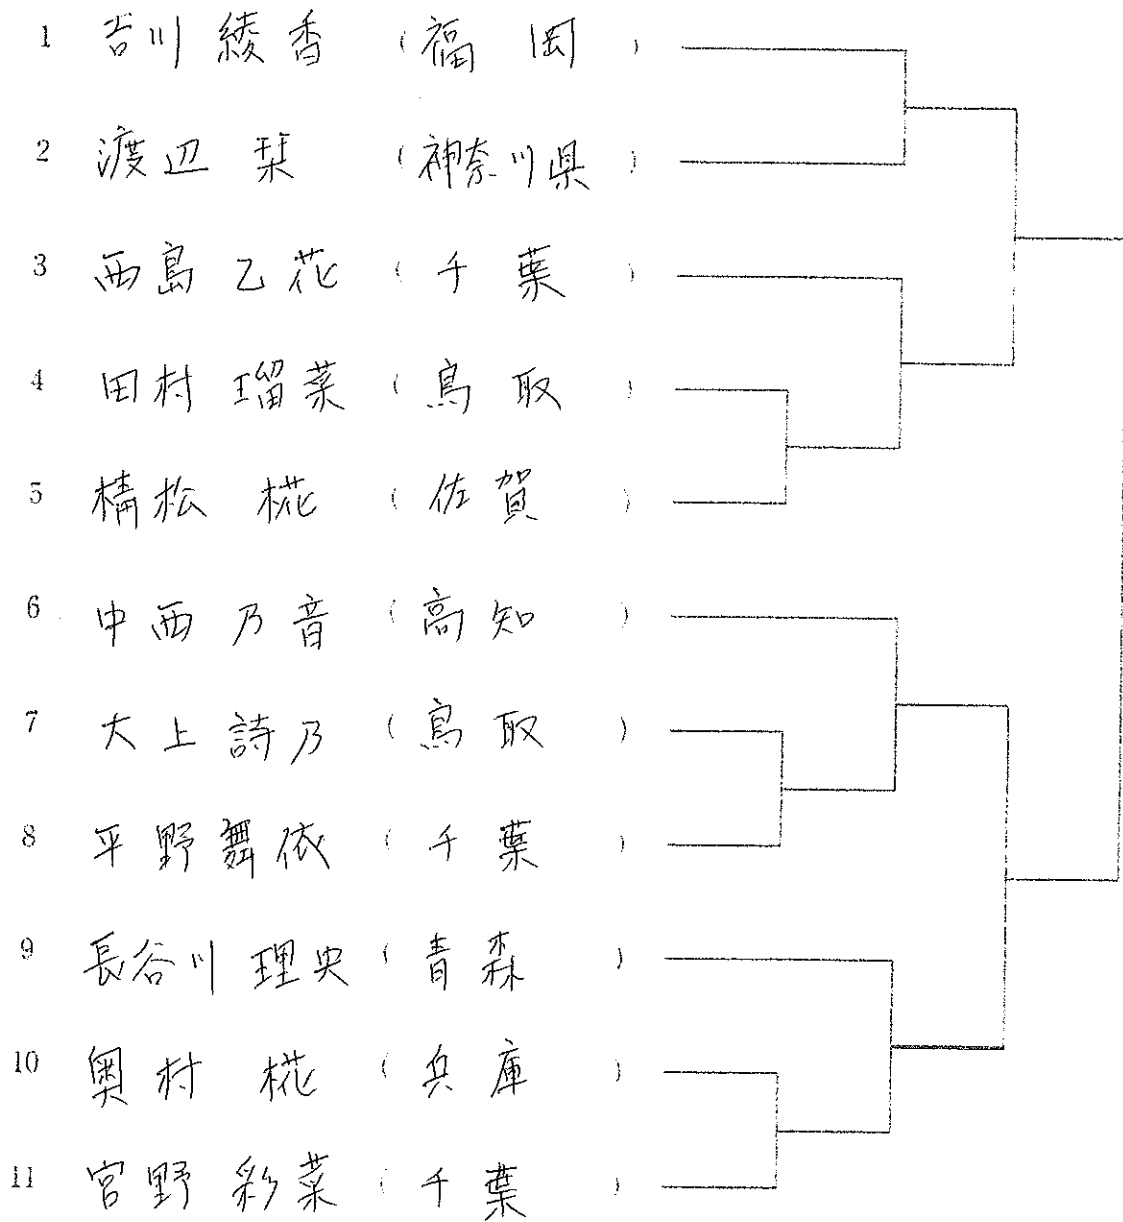 1 吉川 綾香 (福 岡)
2 渡辺 栞 (神奈川県)
3 西島 乙花 (千 葉)
4 田村 瑠菜 (鳥 取)
5 楠松 椛 (佐 賀)
6 中西 乃音 (高 知)
7 大上 詩乃 (鳥 取)
8 平野 舞依 (千 葉)
9 長谷川 理央 (青 森)
10 奥村 椛 (兵 庫)
11 宮野 彩菜 (千 葉)